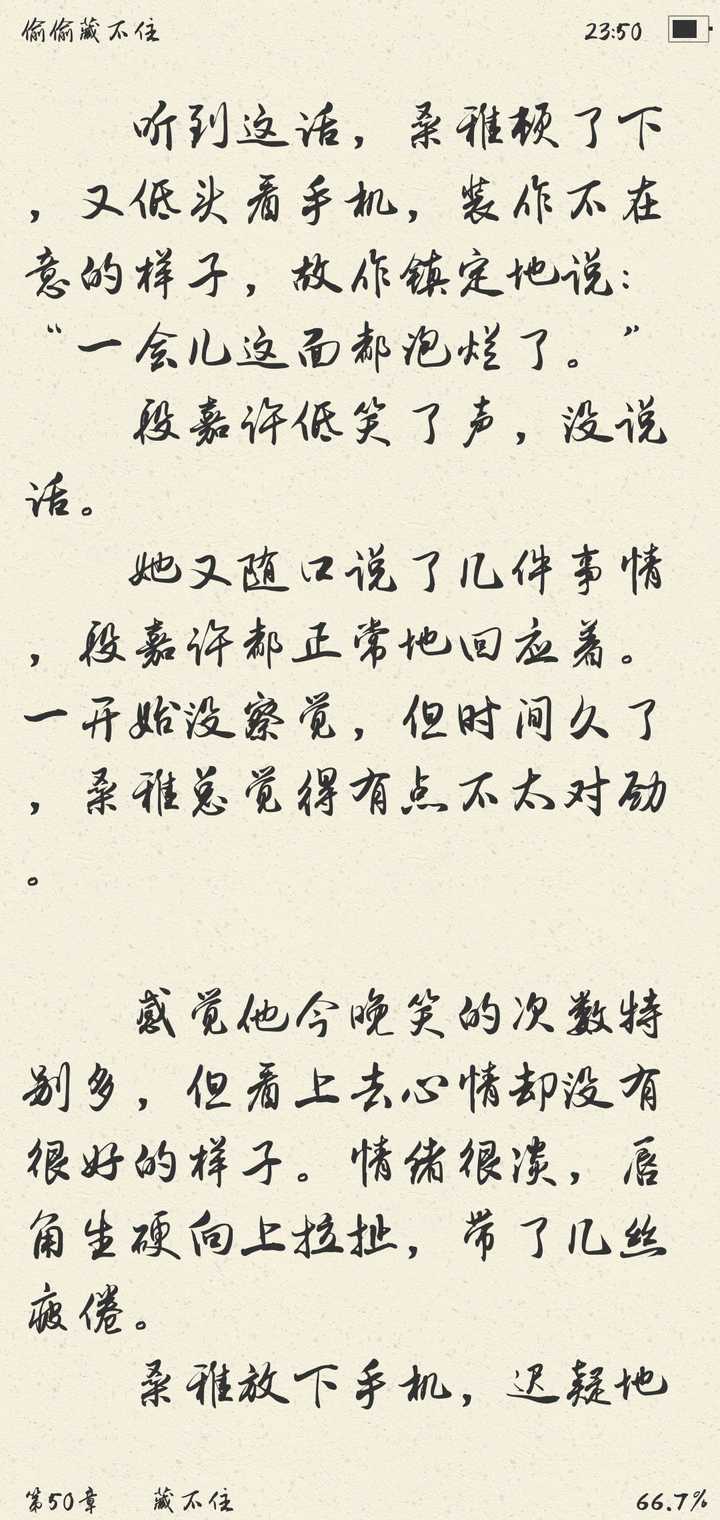 偷偷藏不住 23:50
听到这话，桑稚顿了下
，又低头看手机，装作不在
意的样子，故作镇定地说：
“一会儿这面都泡烂了。”
段嘉许低笑了声，没说
话。
她又随口说了几件事情
，段嘉许都正常地回应着。
一开始没察觉，但时间久了
，桑稚总觉得有点不太对劲
。
感觉他今晚笑的次数特
别多，但看上去心情却没有
很好的样子。情绪很淡，唇
角生硬向上拉扯，带了几丝
疲倦。
桑稚放下手机，迟疑地
第50章 藏不住 66.7%